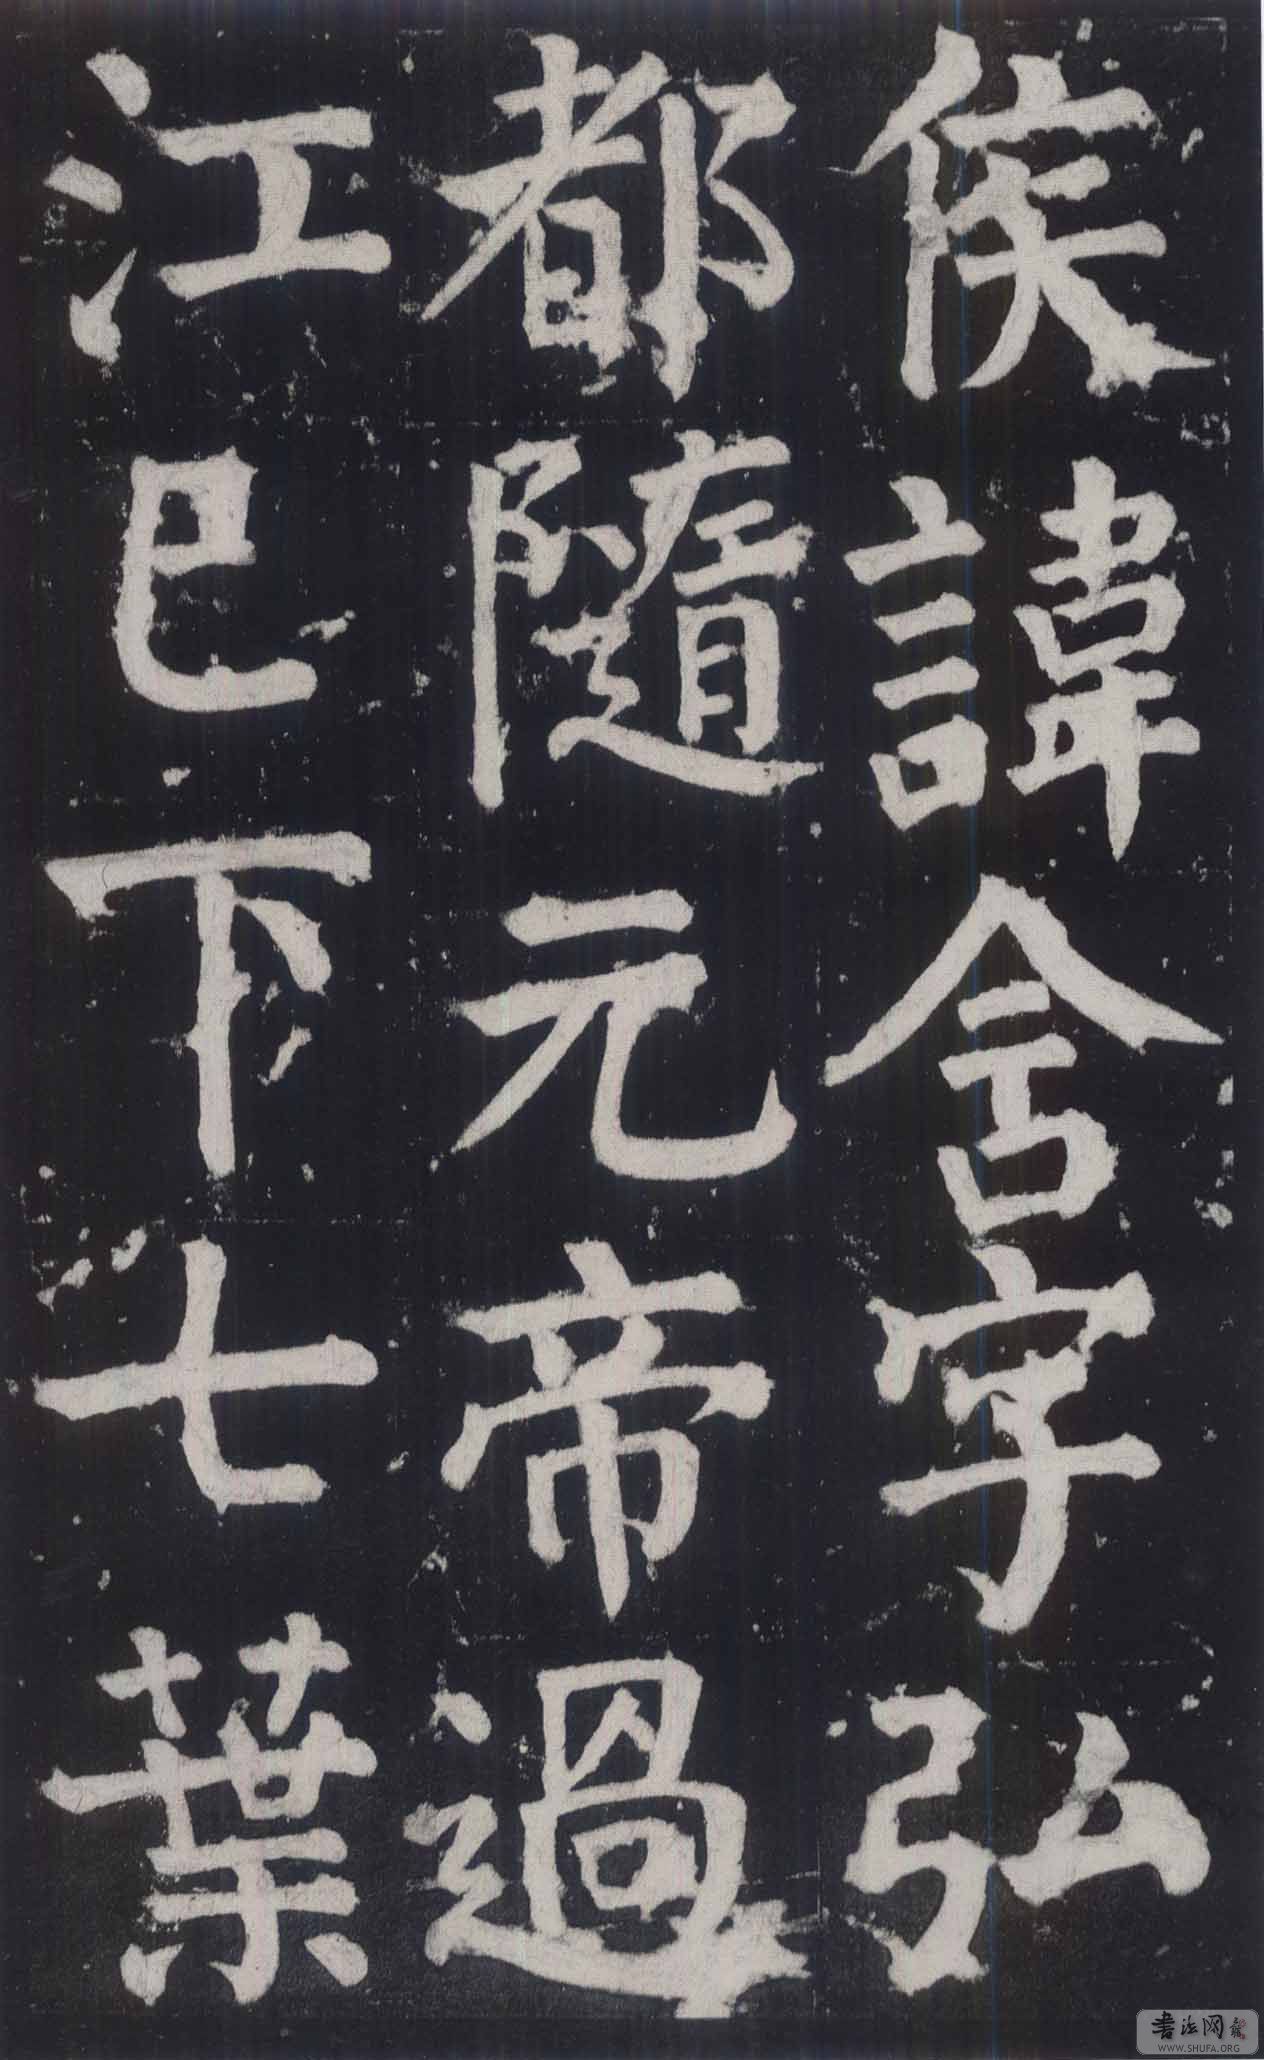 侯諱含字弘
都隨元帝過
江已下七葉
書法网
WWW.SHUFA.ORG